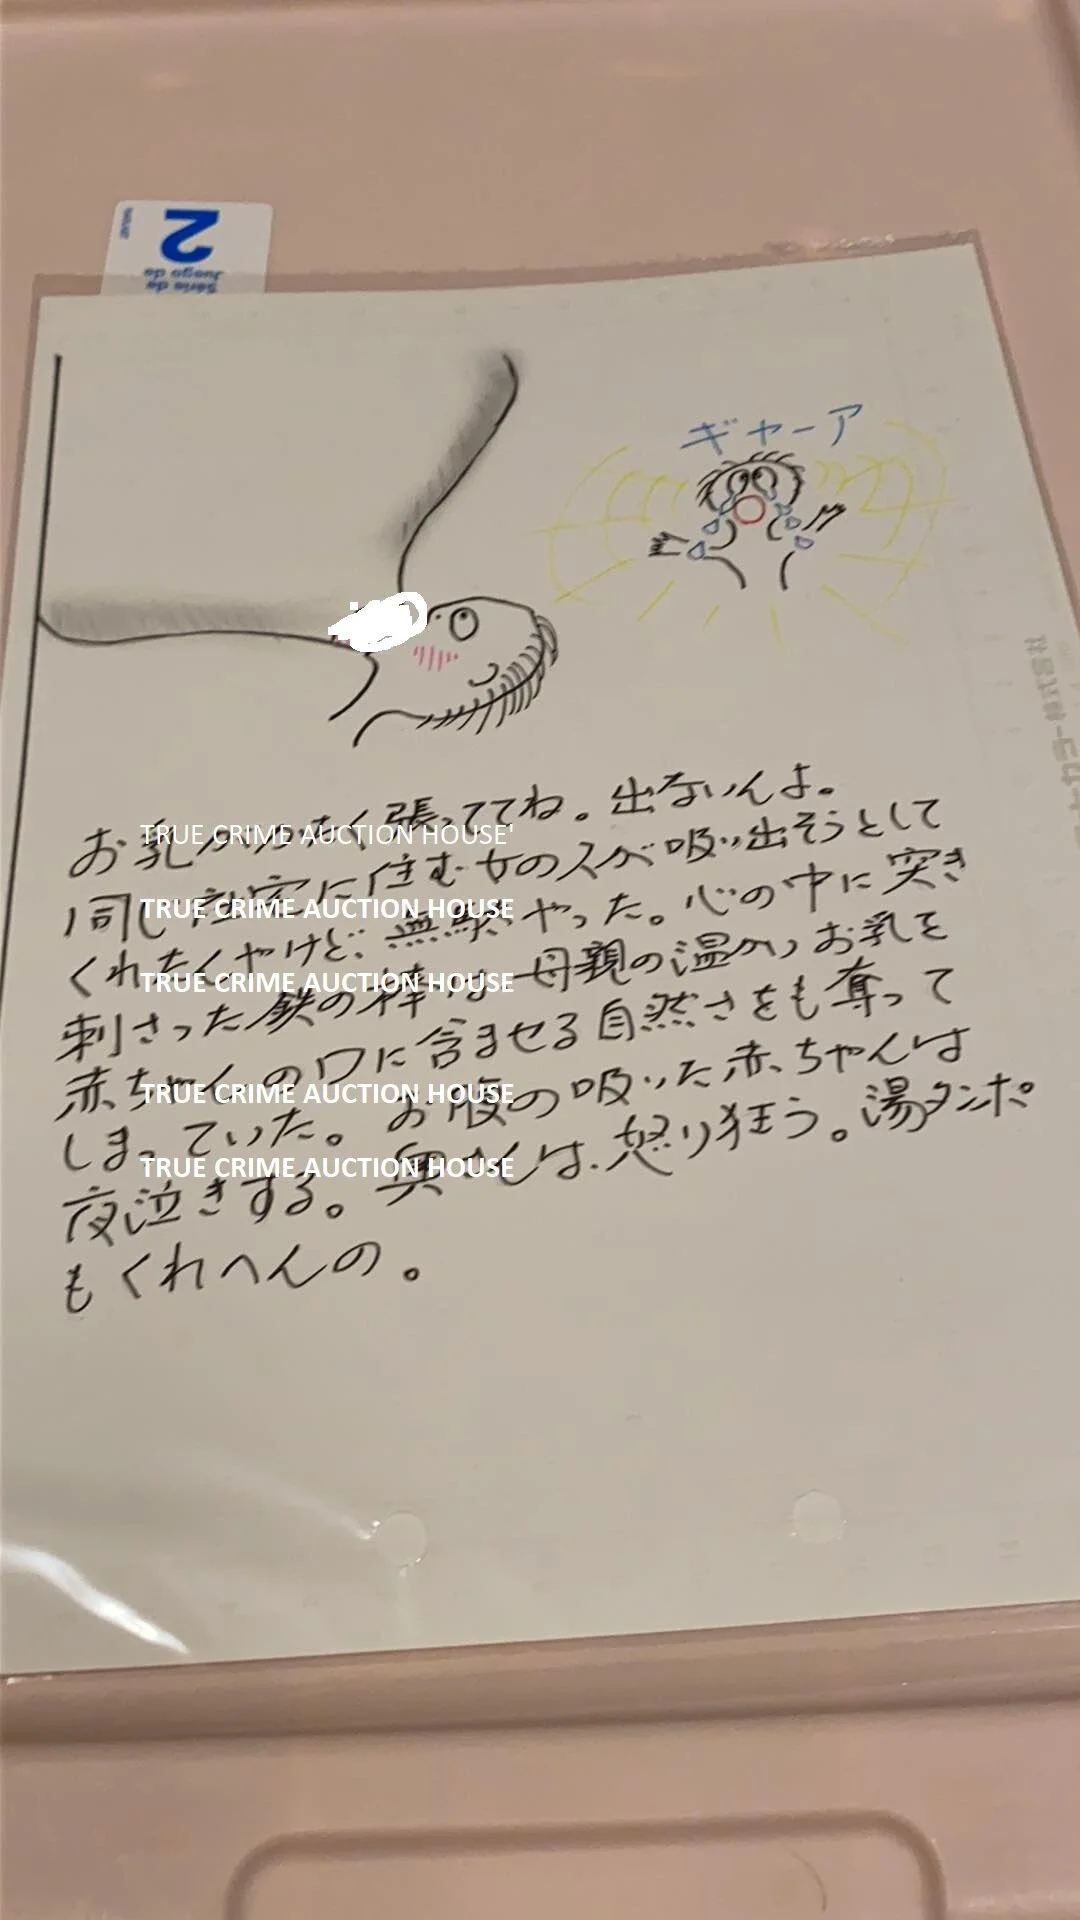 2
Juego de
Serie de
ギャーア
お乳がかたく張っててね。出ないんよ。
同じ部屋に住む女の人が吸い出そうとして
くれたんやけど、無駄やった。心の中に突き
刺さった鉄の棒は母親の温かいお乳を
赤ちゃんの口に含ませる自然さをも奪って
しまっていた。お腹の吸った赤ちゃんは
夜泣きする。奥さんは、怒り狂う。湯タンポ
もくれへんの。
TRUE CRIME AUCTION HOUSE'
TRUE CRIME AUCTION HOUSE
TRUE CRIME AUCTION HOUSE
TRUE CRIME AUCTION HOUSE
TRUE CRIME AUCTION HOUSE